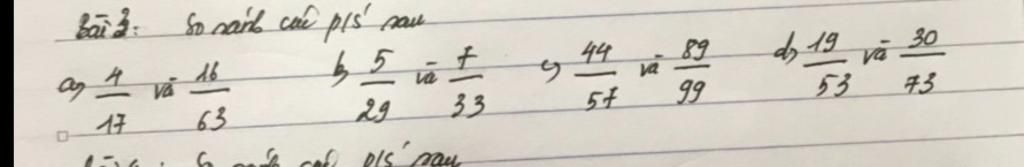 Bài 3: So sánh các p/s' sau
a, 4/17 và 16/63 b, 5/29 và 7/33 c, 44/57 và 89/99 d, 19/53 và 30/73
So sánh các p/s' sau